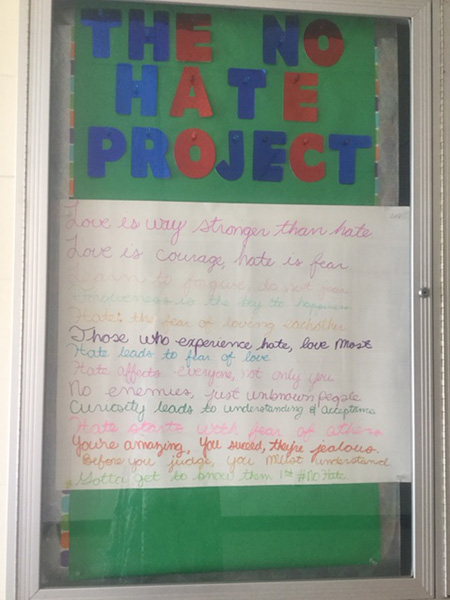 THE NO
HATE
PROJECT
Love is way stronger than hate
Love is courage, hate is fear
Learn to forgive, do not fear
Forgiveness is the key to happiness
Hate: the fear of loving eachother
Those who experience hate, love most
Hate leads to fear of love
Hate affects everyone, not only you
No enemies, just unknown people
Curiosity leads to understanding & acceptance
Hate starts with fear of others
You're amazing, You succeed, they're jealous.
Before you judge, you must understand
Gotta get to know them 1st #NoHate